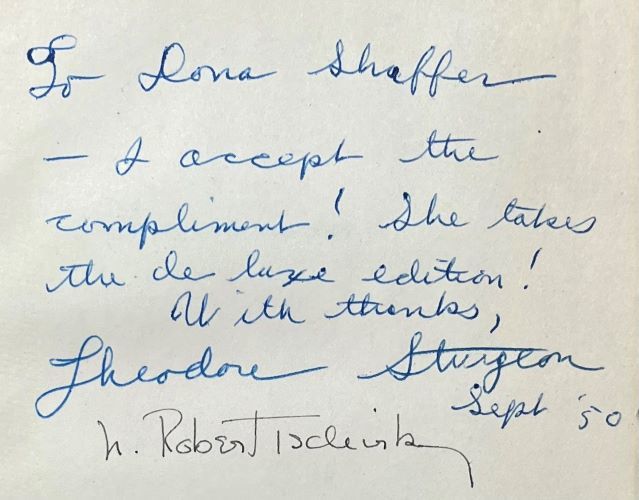 To Dona Shaffer
— I accept the
compliment! She takes
the de luxe edition!
With thanks,
Theodore Sturgeon
Sept '50
N. Robert Tschirky